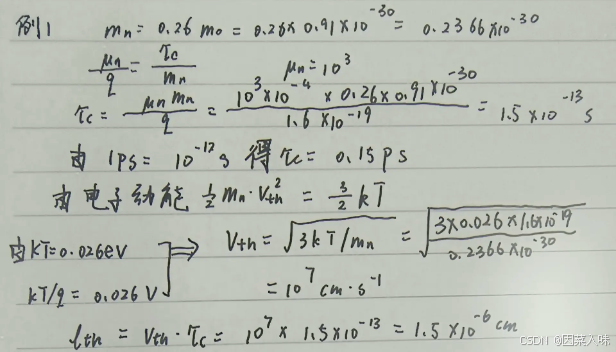 例1 mn = 0.26 m0 = 0.26 × 0.91×10^-30 = 0.2366×10^-30
μn/q = τc/mn μn = 10^3
τc = μn mn/q = 10^3×10^-4 × 0.26×0.91×10^-30/1.6×10^-19 = 1.5×10^-13 s
由 1ps = 10^-12 s 得 τc = 0.15 ps
由电子动能 1/2 mn·Vth^2 = 3/2 kT
由kT=0.026eV ⇒ Vth = √(3kT/mn) = √(3×0.026×1.6×10^-19/0.2366×10^-30)
kT/q = 0.026 V = 10^7 cm·s^-1
lth = Vth·τc = 10^7 × 1.5×10^-13 = 1.5×10^-6 cm
CSDN @因菜入味